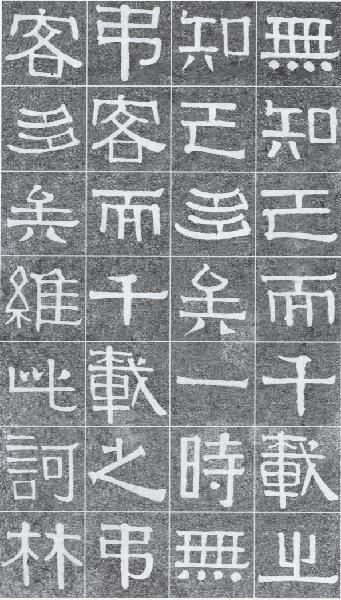 無知己而千載之
知己多矣一時無
弔客而千載之弔
客多矣維此詞林